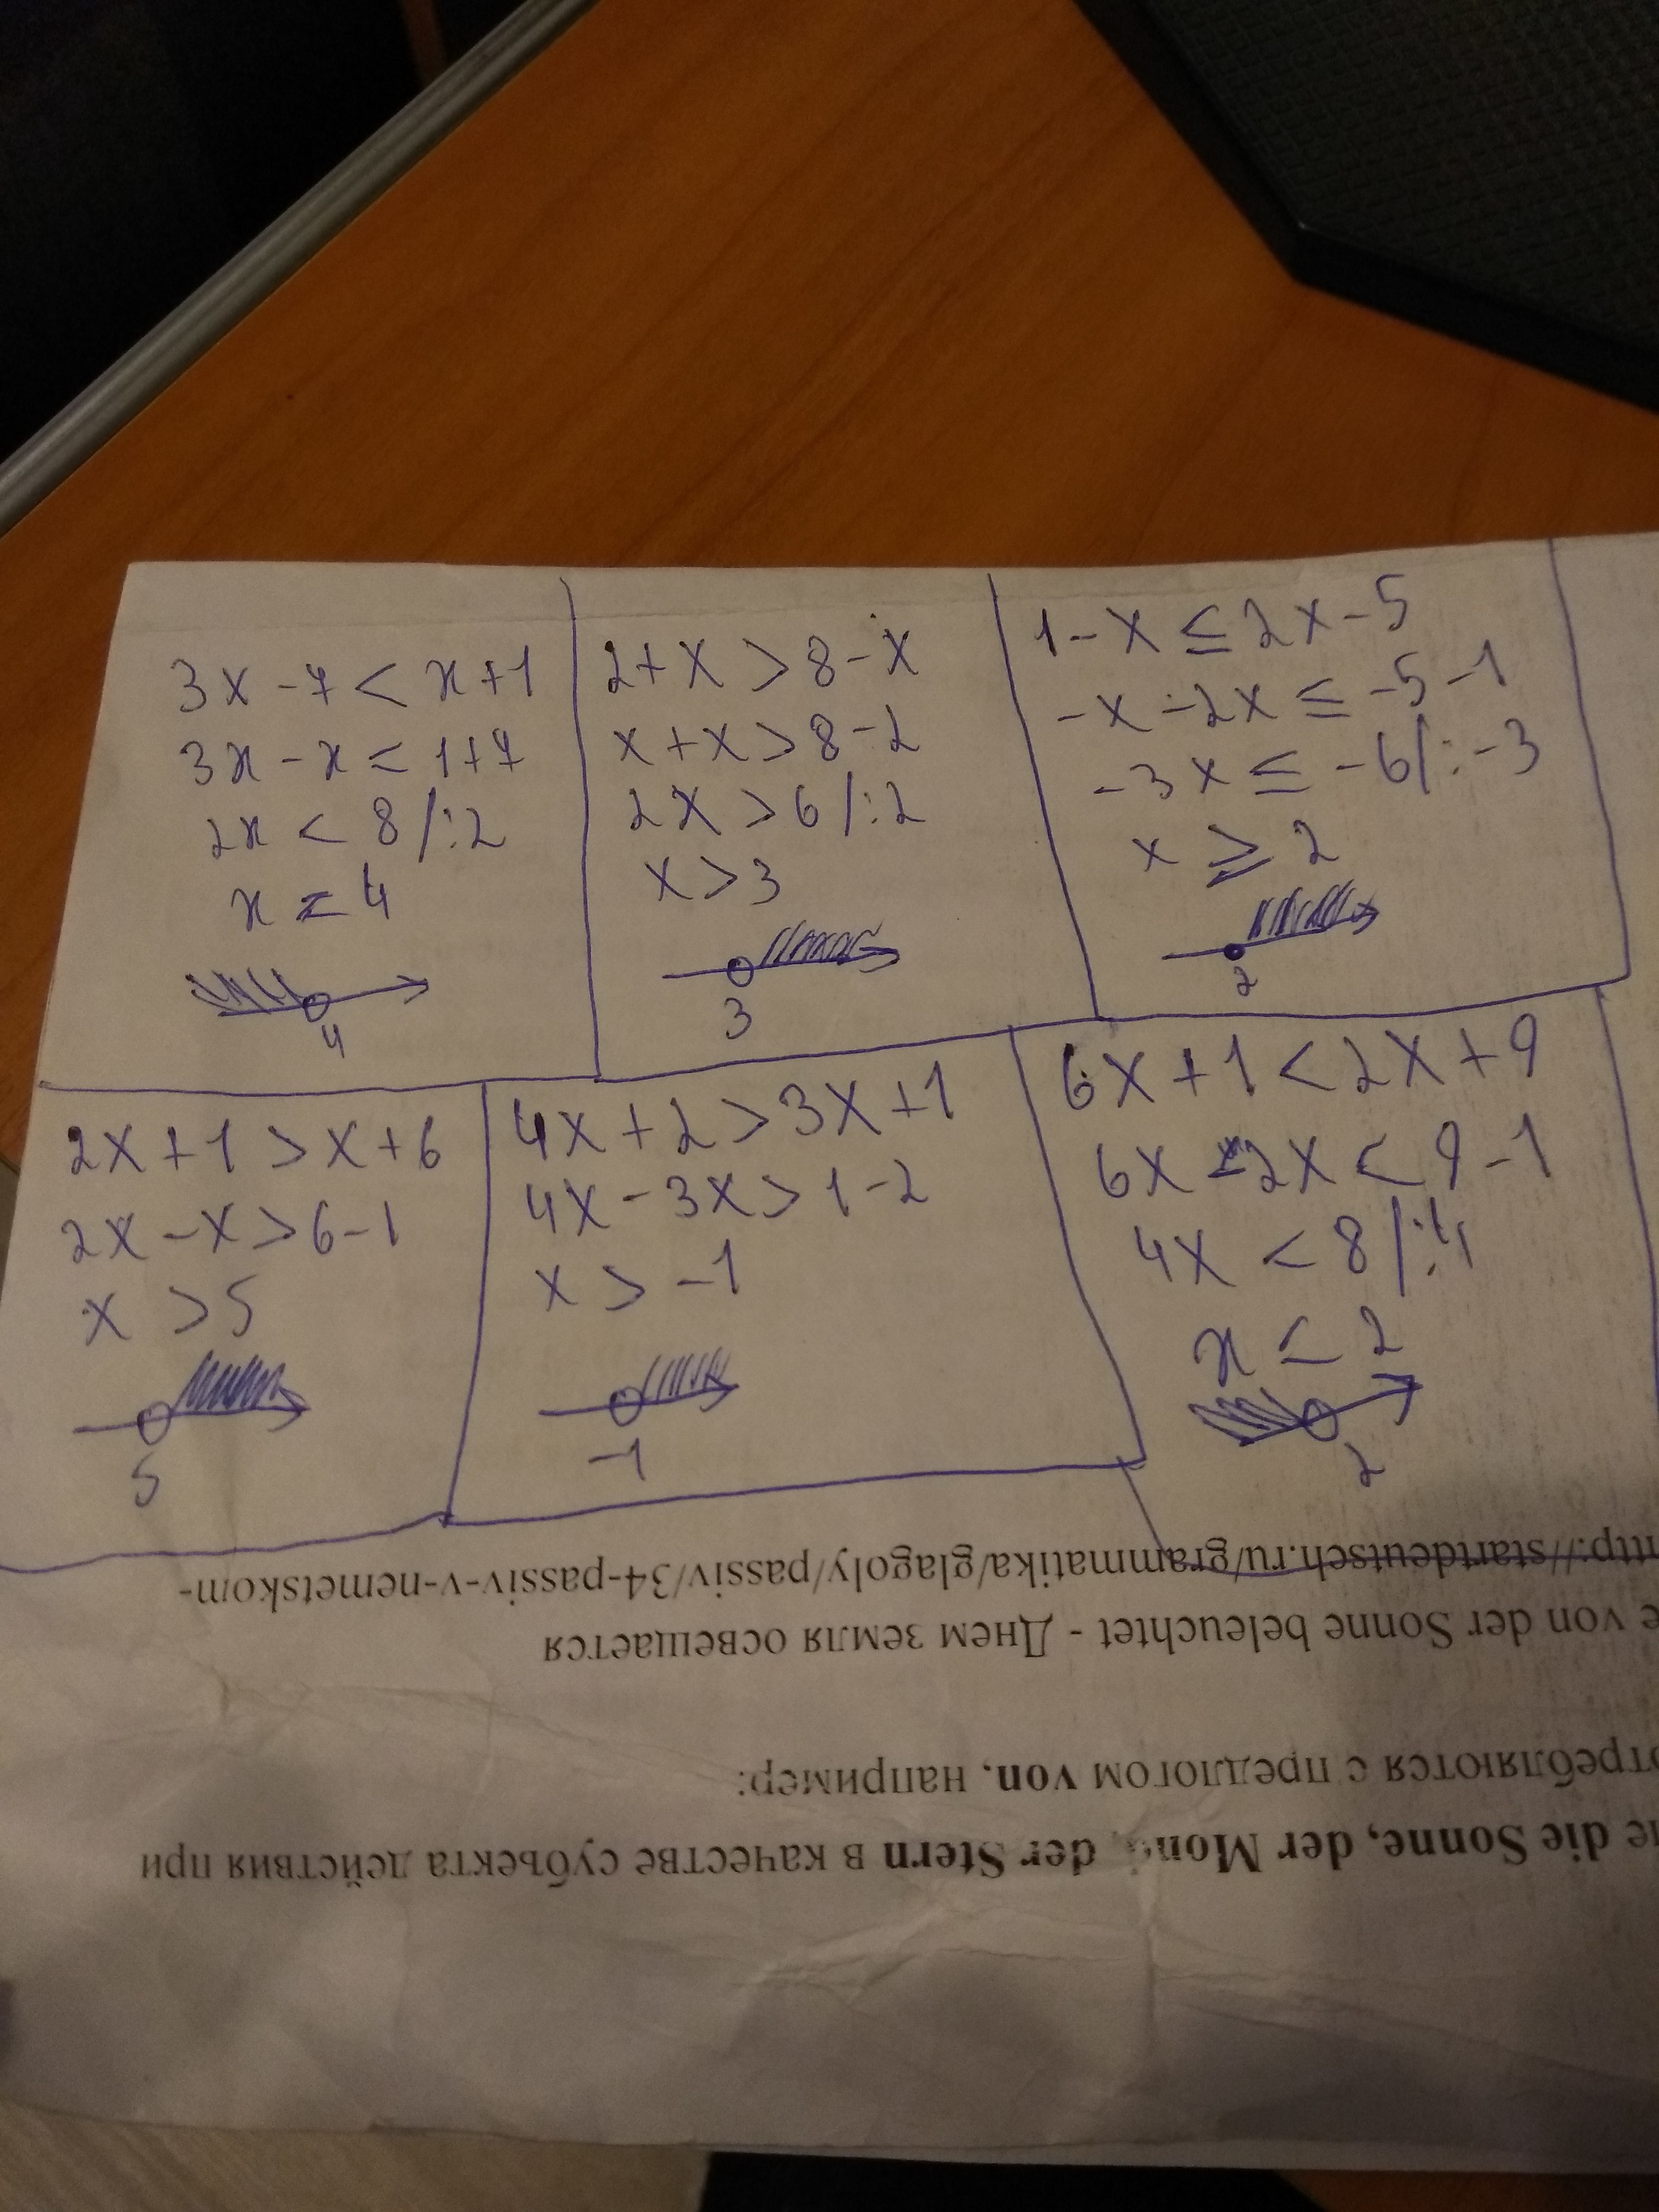 3x-7<x+1
3x-x<1+7
2x<8/:2
x<4
4
2+x>8-x
x+x>8-2
2x>6/:2
x>3
3
1-x≤2x-5
-x-2x≤-5-1
-3x≤-6/:-3
x≥2
2
2x+1>x+6
2x-x>6-1
x>5
5
4x+2>3x+1
4x-3x>1-2
x>-1
-1
6x+1<2x+9
6x-2x<9-1
4x<8/:4
x<2
2
не die Sonne, der Mond, der Stern в качестве субъекта действия при
отребляются с предлогом von, например:
e von der Sonne beleuchtet - Днем земля освещается
http://startdeutsch.ru/grammatika/glagoly/passiv/34-passiv-v-nemetskom-